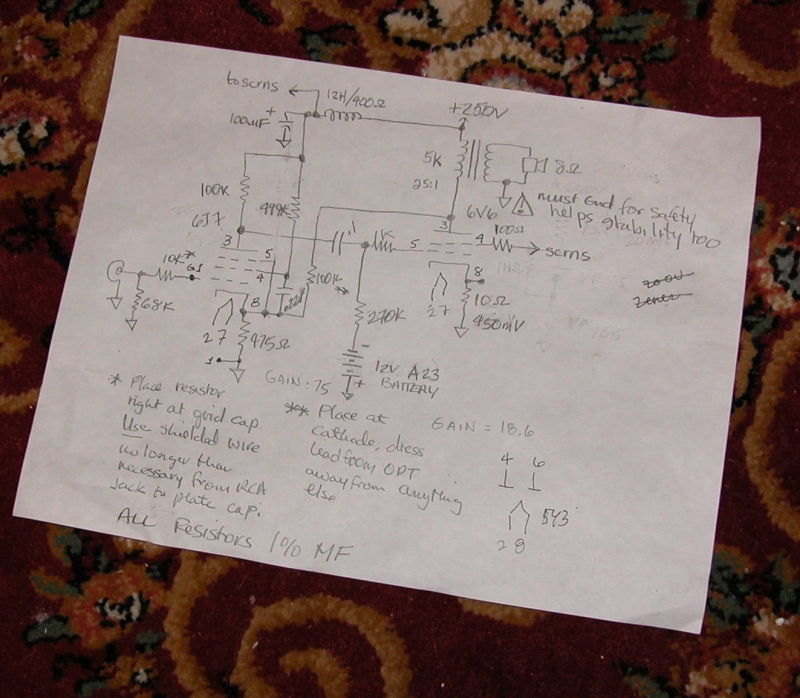 to scrns
12H/400Ω
+250V
+
100uF
5K
25:1
8Ω
must Gnd for safety
helps stability too
100K
499K
6J7
6V6
3
5
4
8
10K*
G1
68K
.1
1K
5
3
4
100Ω
scrns
100K
**
8
10Ω
450mV
27
270K
27
475Ω
1
-
+
12V A23
BATTERY
Zener
GAIN: 75
* Place resistor
right at grid cap.
Use shielded wire
no longer than
necessary from RCA
Jack to plate cap.
** Place at
cathode, dress
lead from OPT
away from anything
else
GAIN = 18.6
4 6
5Y3
2 8
ALL Resistors 1% MF